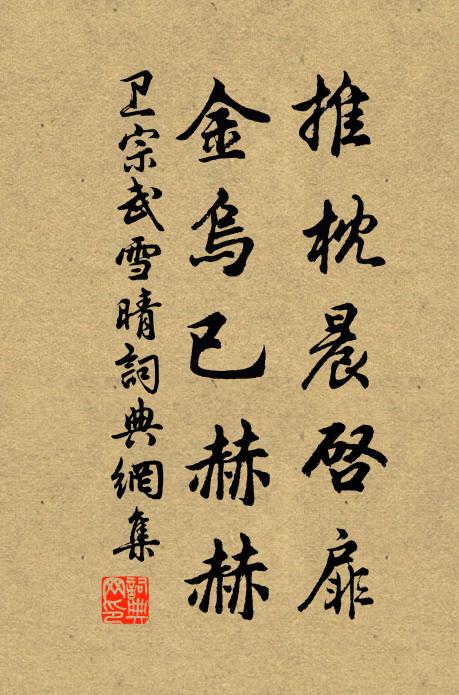 推枕晨啓扉
金烏已赫赫
卫宗武雪晴詞典網集
詞典网印